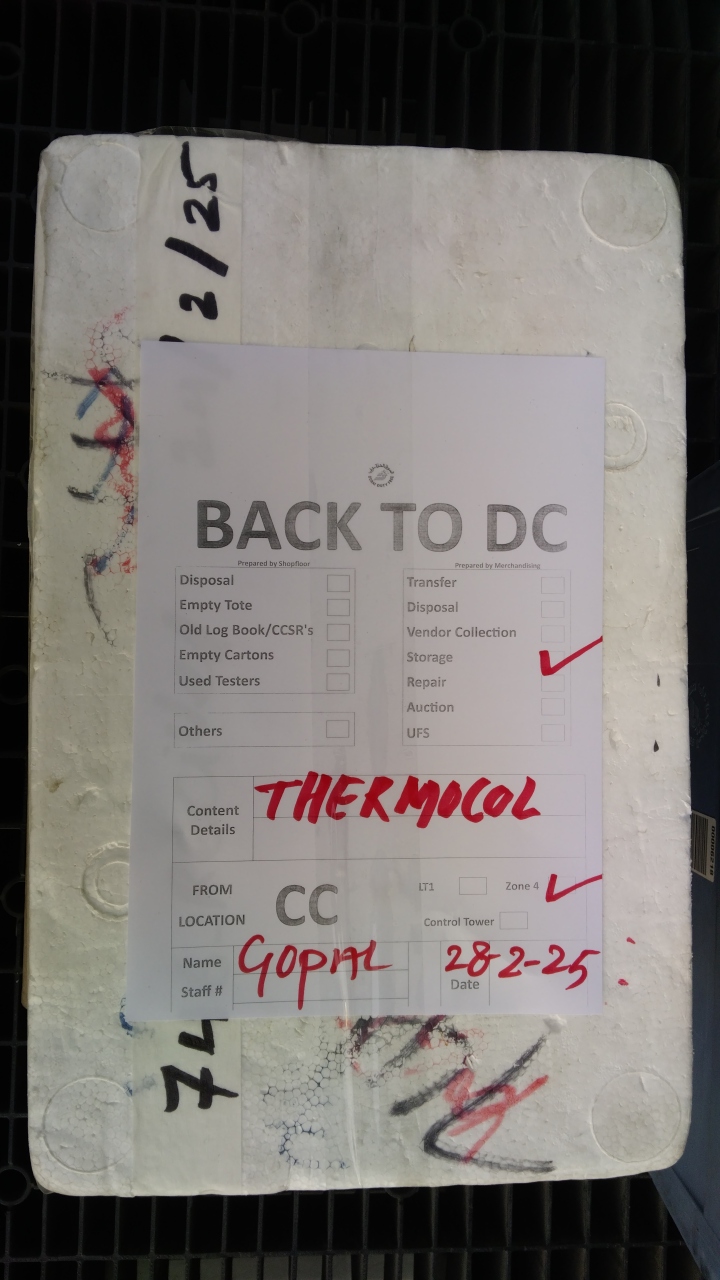 2/25
BACK TO DC
Prepared by Shopfloor
Disposal
Empty Tote
Old Log Book/CCSR's
Empty Cartons
Used Testers
Others
Prepared by Merchandising
Transfer
Disposal
Vendor Collection
Storage
Repair
Auction
UFS
Content Details THERMOCOL
FROM LOCATION CC
LT1 Zone 4
Control Tower
Name GOPAL
Staff #
28-2-25
Date
74